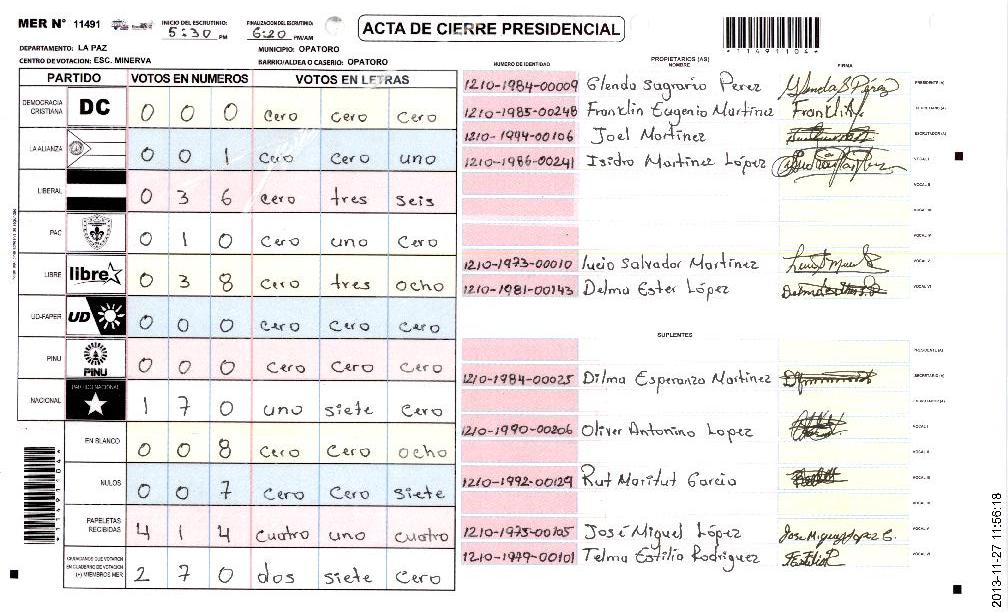 MER N° 11491
INICIO DEL ESCRUTINIO: 5:30 PM
FINALIZACION DEL ESCRUTINIO: 6:20 PM/AM
ACTA DE CIERRE PRESIDENCIAL
*11491104*
DEPARTAMENTO: LA PAZ
MUNICIPIO: OPATORO
CENTRO DE VOTACION: ESC. MINERVA
BARRIO/ALDEA O CASERIO: OPATORO
PARTIDO VOTOS EN NUMEROS VOTOS EN LETRAS
DEMOCRACIA CRISTIANA DC 0 0 0 cero cero cero
LA ALIANZA 0 0 1 cero cero uno
LIBERAL 0 3 6 cero tres seis
PAC 0 1 0 cero uno cero
LIBRE libre 0 3 8 cero tres ocho
UD-FAPER UD 0 0 0 cero cero cero
PINU PINU 0 0 0 cero cero cero
NACIONAL PARTIDO NACIONAL 1 7 0 uno siete cero
EN BLANCO 0 0 8 cero cero ocho
NULOS 0 0 7 cero cero siete
PAPELETAS RECIBIDAS 4 1 4 cuatro uno cuatro
CIUDADANOS QUE VOTARON EN CUADERNO DE VOTACION (+) MIEMBROS MER 2 7 0 dos siete cero
*11491104*
PROPIETARIOS (AS)
NUMERO DE IDENTIDAD NOMBRE FIRMA
1210-1984-00009 Glenda Sagrario Perez Glenda S Pérez PRESIDENTE (A)
1210-1985-00248 Franklin Eugenio Martinez Franklin SECRETARIO (A)
1210-1994-00106 Joel Martinez ESCRUTADOR (A)
1210-1986-00241 Isidro Martinez López VOCAL I
VOCAL II
VOCAL III
VOCAL IV
1210-1973-00010 lucio Salvador Martinez VOCAL V
1210-1981-00143 Delma Ester López VOCAL VI
SUPLENTES
PRESIDENTE (A)
1210-1984-00025 Dilma Esperanza Martinez SECRETARIO (A)
ESCRUTADOR (A)
1210-1990-00206 Oliver Antonino Lopez VOCAL I
VOCAL II
1210-1992-00129 Rut Maritut Garcia VOCAL III
VOCAL IV
1210-1975-00105 José Miguel López Jose Miguel Lopez G. VOCAL V
1210-1979-00101 Telma Estilia Rodriguez VOCAL VI
2013-11-27 11:56:18